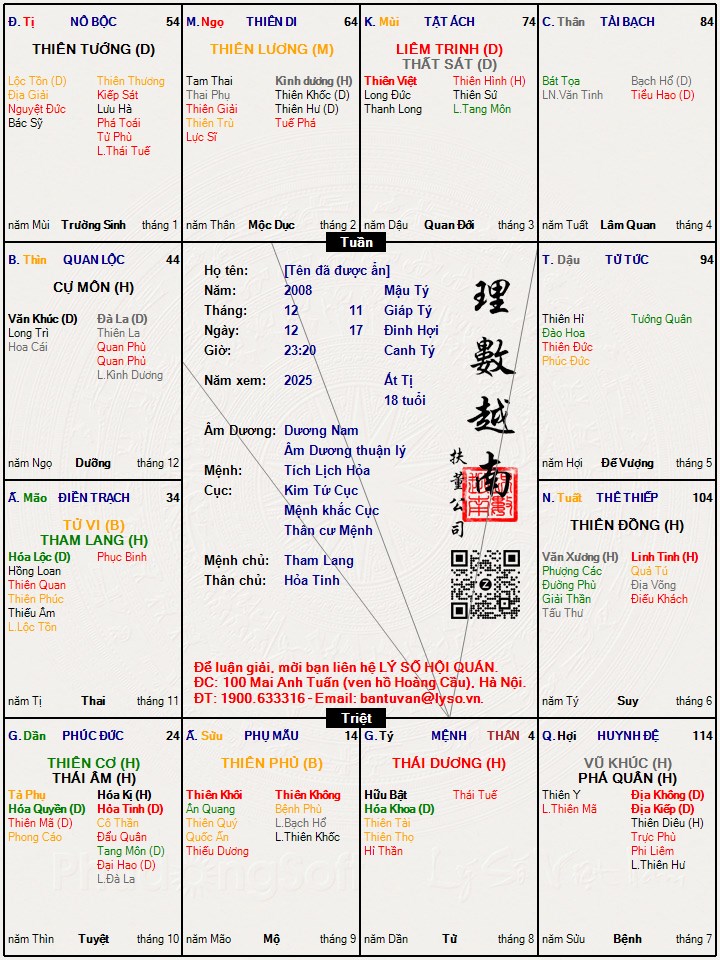 Đ. Tị NÔ BỘC 54
THIÊN TƯỚNG (D)
Lộc Tồn (D) Thiên Thương
Địa Giải Kiếp Sát
Nguyệt Đức Lưu Hà
Bác Sỹ Phá Toái
Tử Phù
L.Thái Tuế
năm Mùi Trường Sinh tháng 1
M. Ngọ THIÊN DI 64
THIÊN LƯƠNG (M)
Tam Thai Kình dương (H)
Thai Phụ Thiên Khốc (D)
Thiên Giải Thiên Hư (D)
Thiên Trù Tuế Phá
Lực Sĩ
năm Thân Mộc Dục tháng 2
K. Mùi TẬT ÁCH 74
LIÊM TRINH (D)
THẤT SÁT (D)
Thiên Việt Thiên Hình (H)
Long Đức Thiên Sứ
Thanh Long L.Tang Môn
năm Dậu Quan Đới tháng 3
C. Thân TÀI BẠCH 84
Bát Tọa Bạch Hổ (D)
LN.Văn Tinh Tiểu Hao (D)
năm Tuất Lâm Quan tháng 4
Tuần
B. Thìn QUAN LỘC 44
CỰ MÔN (H)
Văn Khúc (D) Đà La (D)
Long Trì Thiên La
Hoa Cái Quan Phù
Quan Phủ
L.Kình Dương
năm Ngọ Dưỡng tháng 12
Họ tên: [Tên đã được ẩn]
Năm: 2008 Mậu Tý
Tháng: 12 11 Giáp Tý
Ngày: 12 17 Đinh Hợi
Giờ: 23:20 Canh Tý
Năm xem: 2025 Ất Tị
18 tuổi
Âm Dương: Dương Nam
Âm Dương thuận lý
Mệnh: Tích Lịch Hỏa
Cục: Kim Tứ Cục
Mệnh khắc Cục
Thân cư Mệnh
Mệnh chủ: Tham Lang
Thân chủ: Hỏa Tinh
理數越南
扶董公司
Để luận giải, mời bạn liên hệ LÝ SỐ HỘI QUÁN.
ĐC: 100 Mai Anh Tuấn (ven hồ Hoàng Cầu), Hà Nội.
ĐT: 1900.633316 - Email: bantuvan@lyso.vn.
T. Dậu TỬ TỨC 94
Thiên Hỉ Tướng Quân
Đào Hoa
Thiên Đức
Phúc Đức
năm Hợi Đế Vượng tháng 5
Ấ. Mão ĐIỀN TRẠCH 34
TỬ VI (B)
THAM LANG (H)
Hóa Lộc (D) Phục Binh
Hồng Loan
Thiên Quan
Thiên Phúc
Thiếu Âm
L.Lộc Tồn
năm Tị Thai tháng 11
N. Tuất THÊ THIẾP 104
THIÊN ĐỒNG (H)
Văn Xương (H) Linh Tinh (H)
Phượng Các Quả Tú
Đường Phù Địa Võng
Giải Thần Điếu Khách
Tấu Thư
năm Tý Suy tháng 6
Triệt
G. Dần PHÚC ĐỨC 24
THIÊN CƠ (H)
THÁI ÂM (H)
Tả Phụ Hóa Kị (H)
Hóa Quyền (D) Hỏa Tinh (D)
Thiên Mã (D) Cô Thần
Phong Cáo Đẩu Quân
Tang Môn (D)
Đại Hao (D)
L.Đà La
năm Thìn Tuyệt tháng 10
Ấ. Sửu PHỤ MẪU 14
THIÊN PHỦ (B)
Thiên Khôi Thiên Không
Ân Quang Bệnh Phù
Thiên Quý L.Bạch Hổ
Quốc Ấn L.Thiên Khốc
Thiếu Dương
năm Mão Mộ tháng 9
G. Tý MỆNH THÂN 4
THÁI DƯƠNG (H)
Hữu Bật Thái Tuế
Hóa Khoa (D)
Thiên Tài
Thiên Thọ
Hỉ Thần
năm Dần Tử tháng 8
Q. Hợi HUYNH ĐỆ 114
VŨ KHÚC (H)
PHÁ QUÂN (H)
Thiên Y Địa Không (D)
L.Thiên Mã Địa Kiếp (D)
Thiên Diêu (H)
Trực Phù
Phi Liêm
L.Thiên Hư
năm Sửu Bệnh tháng 7